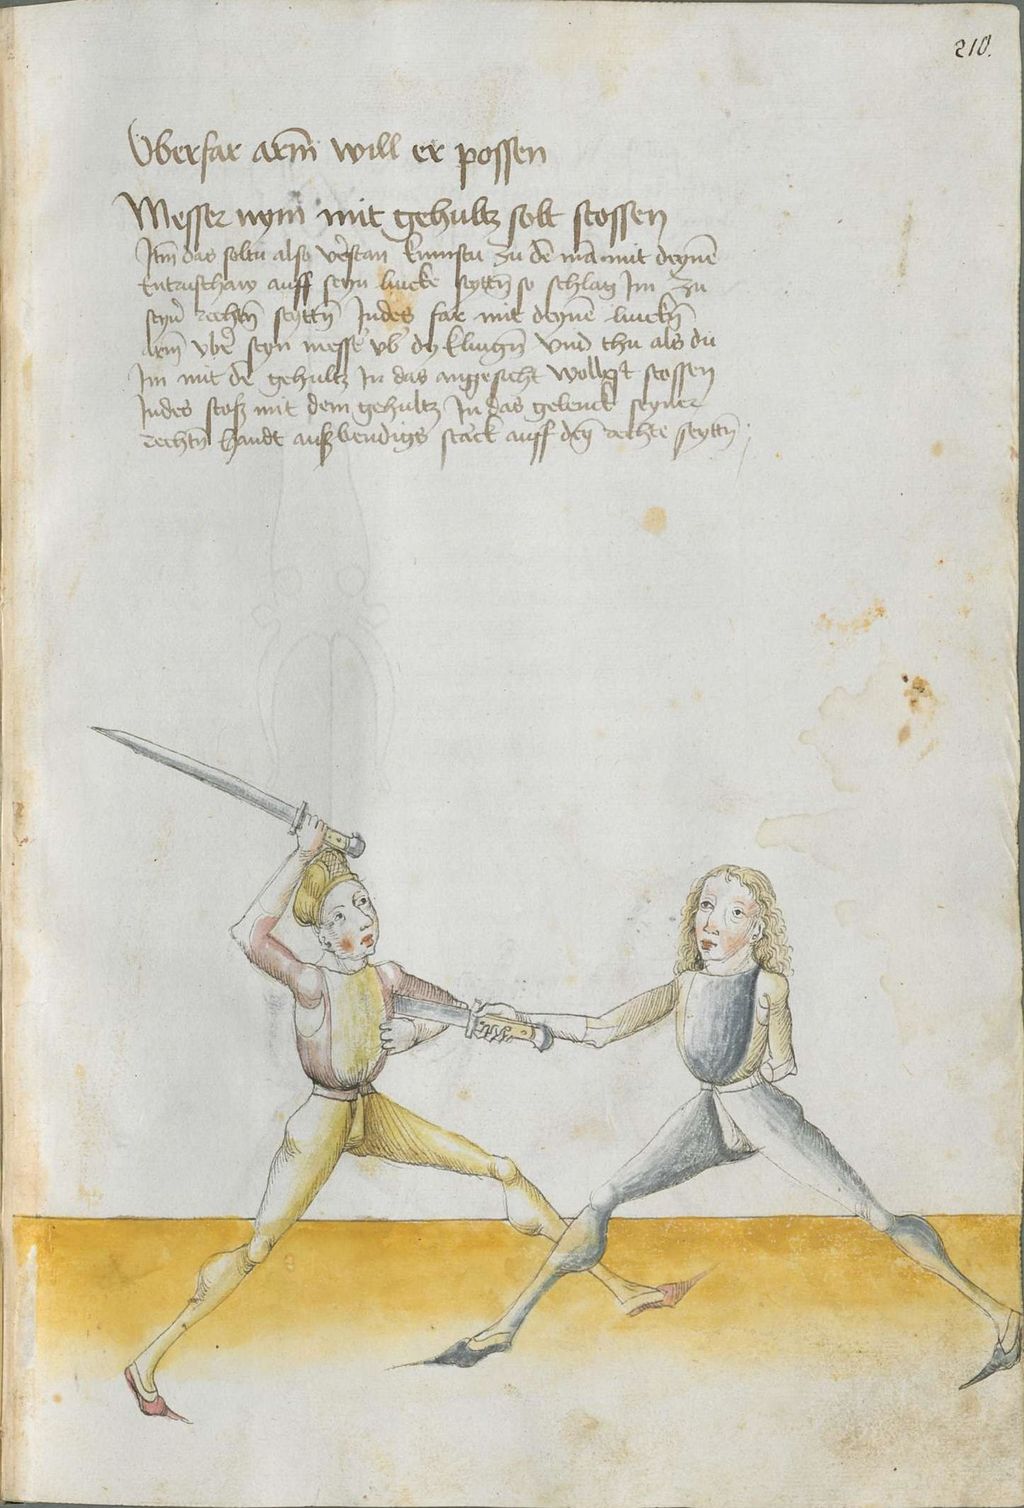 210.
Vberfar arm̄ will er possen
Messer nym mit gehultz solt stossen
Itm̄ das soltu also v̄estan kumstu zu dē mā mit deynē
Entrusthaw auff seyn lincke seyttn̄ so schlag Im zu
seyn̄ rechtn̄ seyttn̄ Indes far mit deynē linckn̄
arm̄ vb̄e seyn messē vb̄ dy klingn̄ vnd thu als du
Im mit dē gehultz In das angesicht wollest stossen
Indes stoß mit dem gehultz In das gelenck seyner
rechtn̄ handt auß bendigs starck auff deȳ rechte seyttn̄